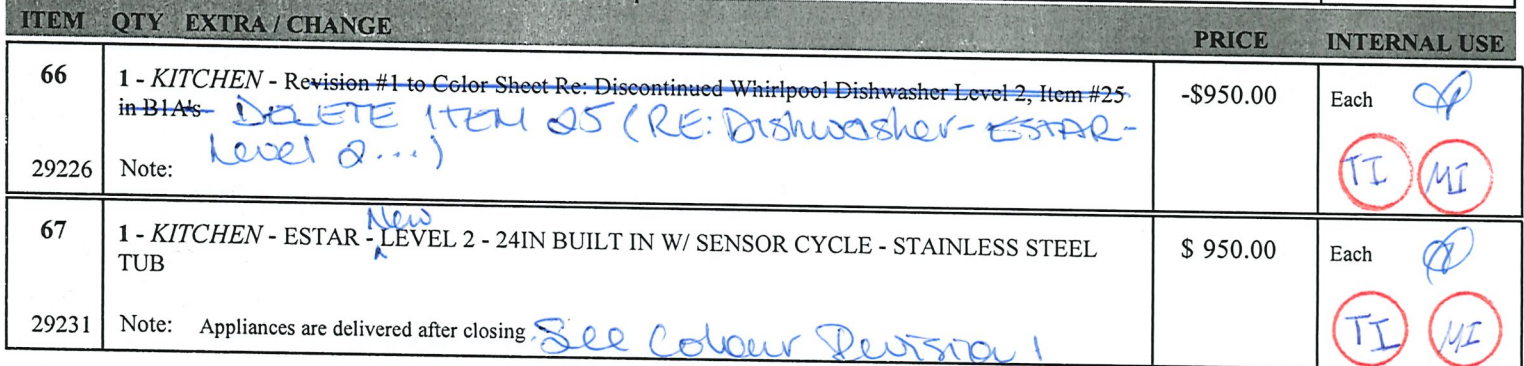 ITEM QTY EXTRA / CHANGE PRICE INTERNAL USE
66 1 - KITCHEN - Revision #1 to Color Sheet Re: Discontinued Whirlpool Dishwasher Level 2, Item #25 -$950.00 Each
in B1A's- DELETE ITEM 25 (RE: Dishwasher- ESTAR-
Level 2...)
29226 Note: TI MI
67 1 - KITCHEN - ESTAR - New LEVEL 2 - 24IN BUILT IN W/ SENSOR CYCLE - STAINLESS STEEL $ 950.00 Each
TUB
29231 Note: Appliances are delivered after closing. See Colour Revision 1 TI MI